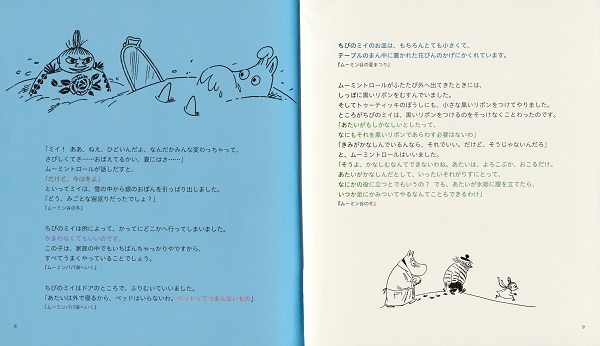 「ミイ！ ああ、ねえ、ひどいんだよ、なんだかみんな変わっちゃって、
さびしくてさ……おぼえてるかい、夏にはさ……」
ムーミントロールが話しだすと、
「だけど、今は冬よ」
といってミイは、雪の中から銀のおぼんを引っぱり出しました。
「どう、みごとな宙返りだったでしょ？」
『ムーミン谷の冬』
ちびのミイは例によって、かってにどこかへ行ってしまいました。
かまわなくてもいいのです。
この子は、家族の中でもいちばんちゃっかりやですから、
すべてうまくやっていることでしょう。
『ムーミンパパ海へいく』
ちびのミイはドアのところで、ふりむいていいました。
「あたいは外で寝るから、ベッドはいらないわ。ベッドってつまんないもの」
『ムーミンパパ海へいく』
8
ちびのミイのお皿は、もちろんとても小さくて、
テーブルのまん中に置かれた花びんのかげにかくれています。
『ムーミン谷の夏まつり』
ムーミントロールがふたたび外へ出てきたときには、
しっぽに黒いリボンをむすんでいました。
そしてトゥーティッキのぼうしにも、小さな黒いリボンをつけてやりました。
ところがちびのミイは、黒いリボンをつけるのをそっけなくことわったのです。
「あたいがもしかなしいとしたって、
なにもそれを黒いリボンであらわす必要はないわ」
「きみがかなしんでいるんなら、それでいい。だけど、そうじゃないんだろ」
と、ムーミントロールはいいました。
「そうよ、かなしむなんてできないわね。あたいは、よろこぶか、おこるだけ。
あたいがかなしんだとして、いったいそれがりすにとって、
なにかの役に立つとでもいうの？ でも、あたいが氷姫に腹を立てたら、
いつか足にかみついてやるなんてこともできるわけ」
『ムーミン谷の冬』
9